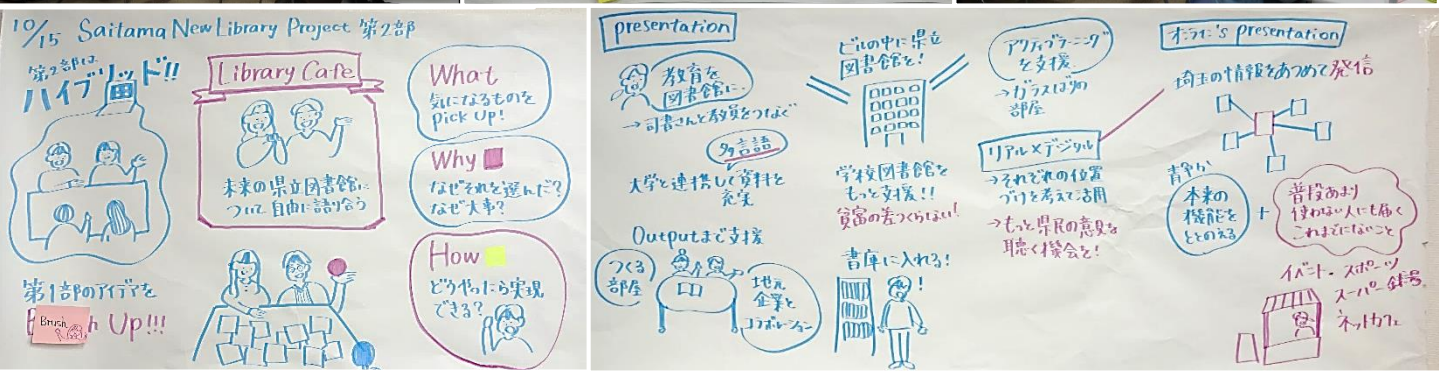 10/15 Saitama New Library Project 第2部
第2部は
ハイブリッド!!
Library Cafe
未来の県立図書館に
ついて自由に語り合う
What
気になるものを
pick Up!
Why
なぜそれを選んだ?
なぜ大事?
How
どうやったら実現
できる?
第1部のアイデアを
Brush Up!!!
presentation
教育を
図書館に、
→司書さんと教員をつなぐ
多言語
大学と連携して資料を
充実
Outputまで支援
つくる
部屋
地元
企業と
コラボレーション
ビルの中に県立
図書館を!
学校図書館を
もっと支援!!
貧富の差つくらない!
書庫に入れる!
アクティブラーニング
を支援
→ガラスばりの
部屋
リアル×デジタル
→それぞれの位置
づけを考えて活用
→もっと県民の意見を
聴く機会を!
presentation
埼玉の情報をあつめて発信
本来の
機能を
ととのえる
+
普段あまり
使わない人にも届く
これまでにないこと
イベント・スポーツ
スーパー銭湯
ネットカフェ